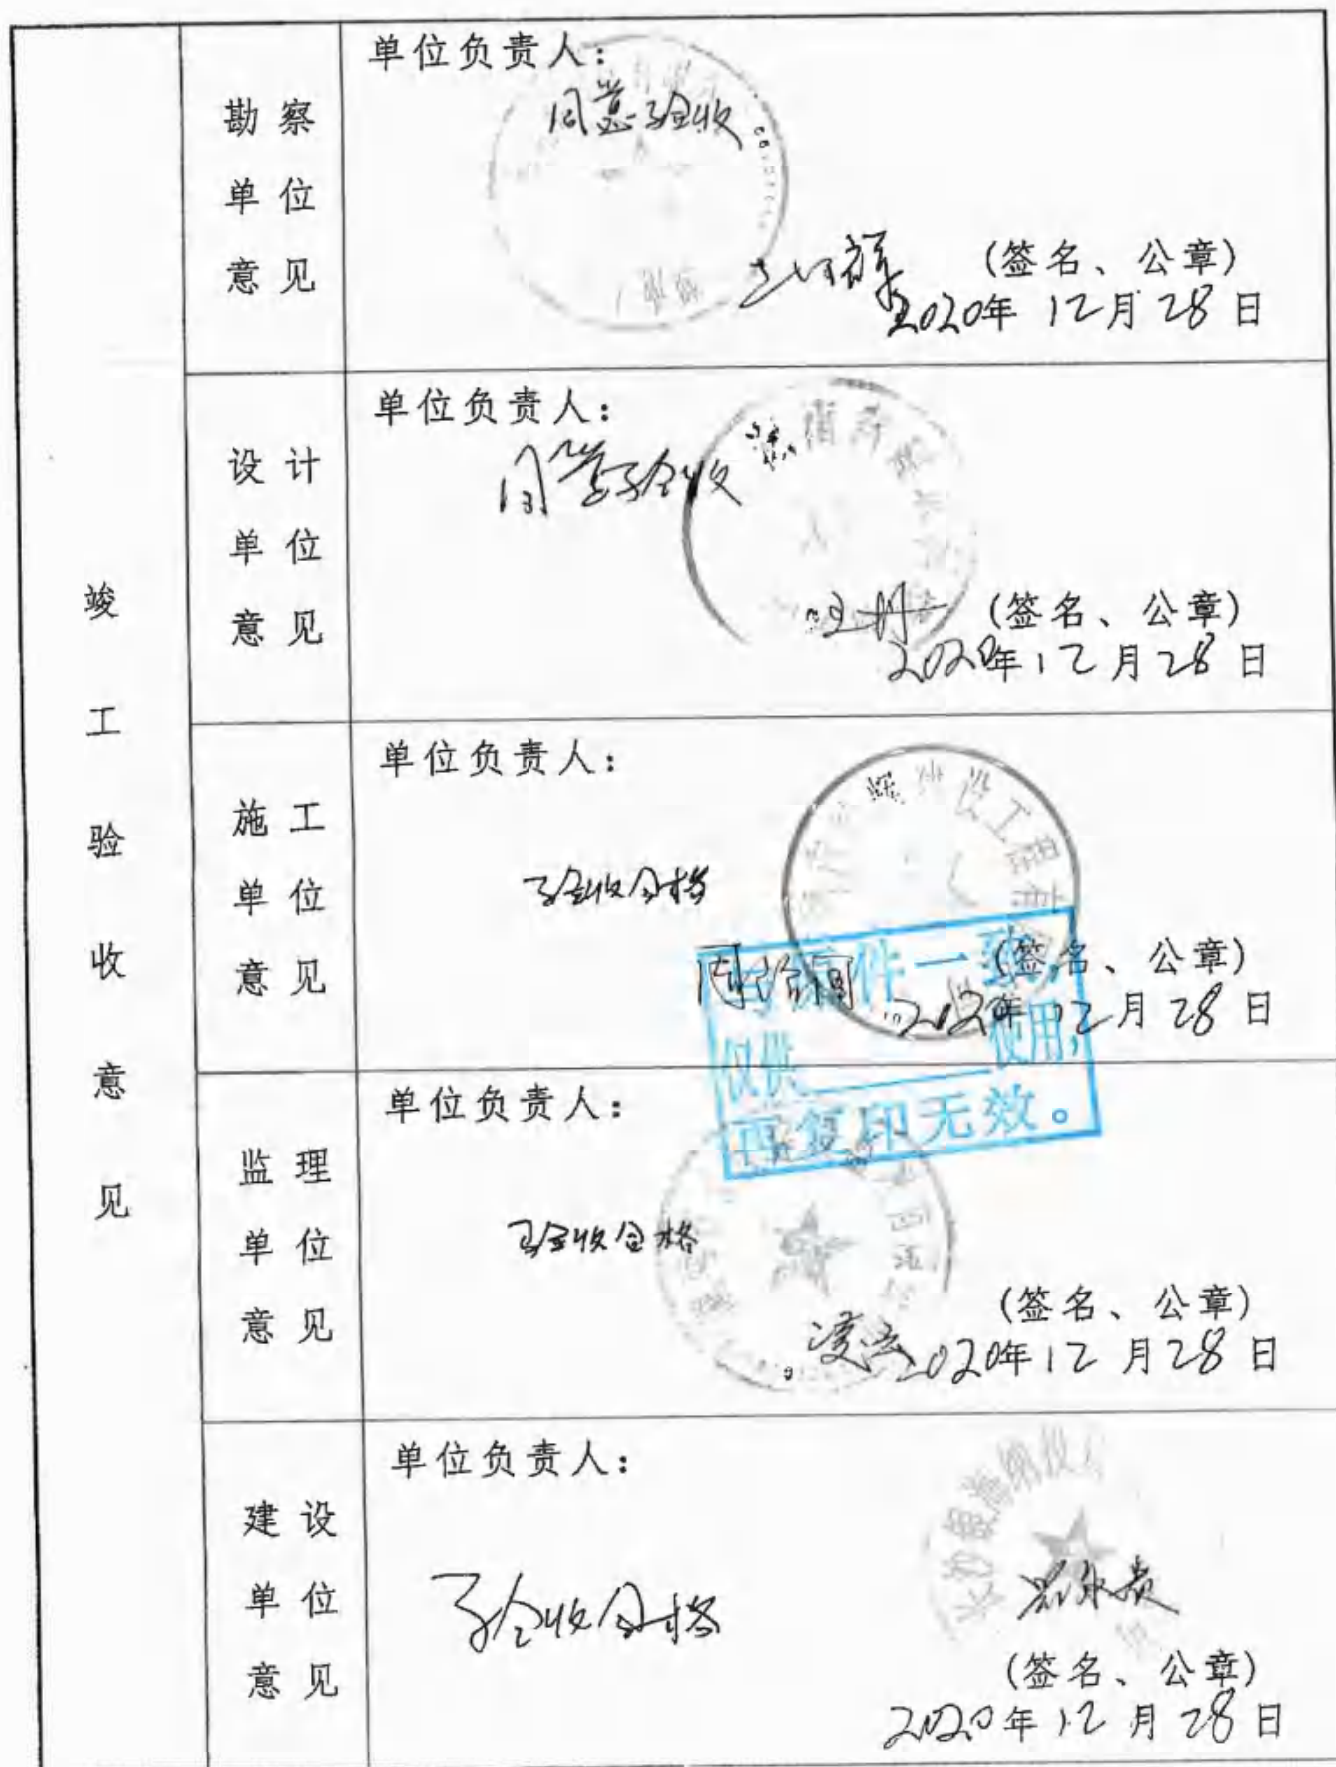 竣工验收意见
勘察单位意见
单位负责人：
同意验收
(签名、公章)
2020年12月28日
设计单位意见
单位负责人：
同意验收
(签名、公章)
2020年12月28日
施工单位意见
单位负责人：
设工程
验收合格
(签名、公章)
2020年12月28日
与原件一致,
仅供______使用,
再复印无效。
监理单位意见
单位负责人：
验收合格
(签名、公章)
2020年12月28日
建设单位意见
单位负责人：
验收合格
(签名、公章)
2020年12月28日